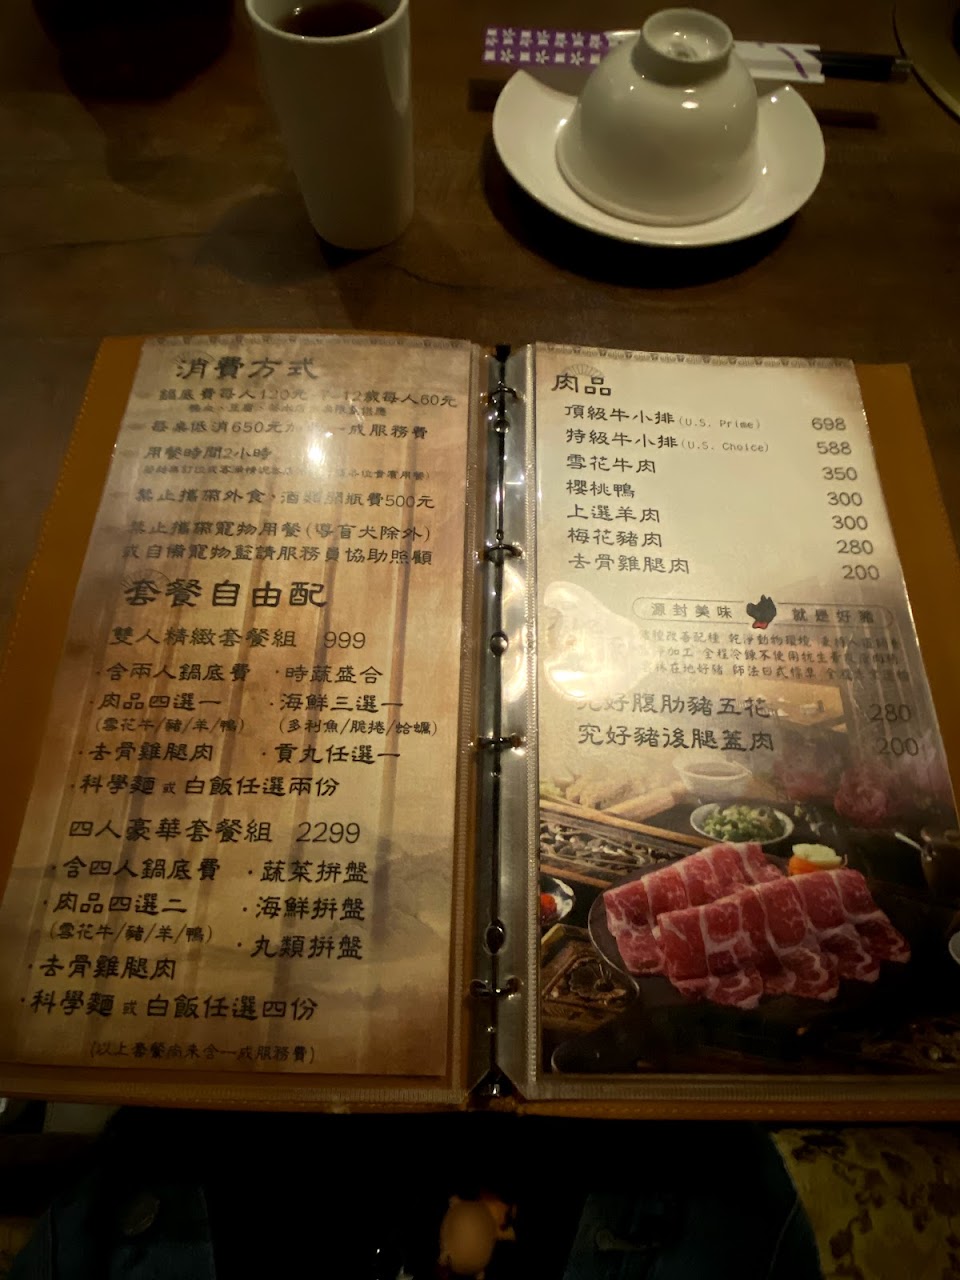 消費方式
鍋底費每人120元 7-12歲每人60元
每桌低消650元加收一成服務費
用餐時間2小時
禁止攜帶外食、酒類開瓶費500元
禁止攜帶寵物用餐(導盲犬除外)
或自備寵物籃請服務員協助照顧
套餐自由配
雙人精緻套餐組 999
·含兩人鍋底費 ·時蔬盛合
·肉品四選一 ·海鮮三選一
(雪花牛/豬/羊/鴨) (多利魚/脆捲/蛤蠣)
·去骨雞腿肉 ·貢丸任選一
·科學麵或白飯任選兩份
四人豪華套餐組 2299
·含四人鍋底費 ·蔬菜拼盤
·肉品四選二 ·海鮮拼盤
(雪花牛/豬/羊/鴨) ·丸類拼盤
·去骨雞腿肉
·科學麵或白飯任選四份
(以上套餐尚未含一成服務費)
肉品
頂級牛小排(U.S. Prime) 698
特級牛小排(U.S. Choice) 588
雪花牛肉 350
櫻桃鴨 300
上選羊肉 300
梅花豬肉 280
去骨雞腿肉 200
源封美味 就是好豬
究好腹肋豬五花 280
究好豬後腿蓋肉 200